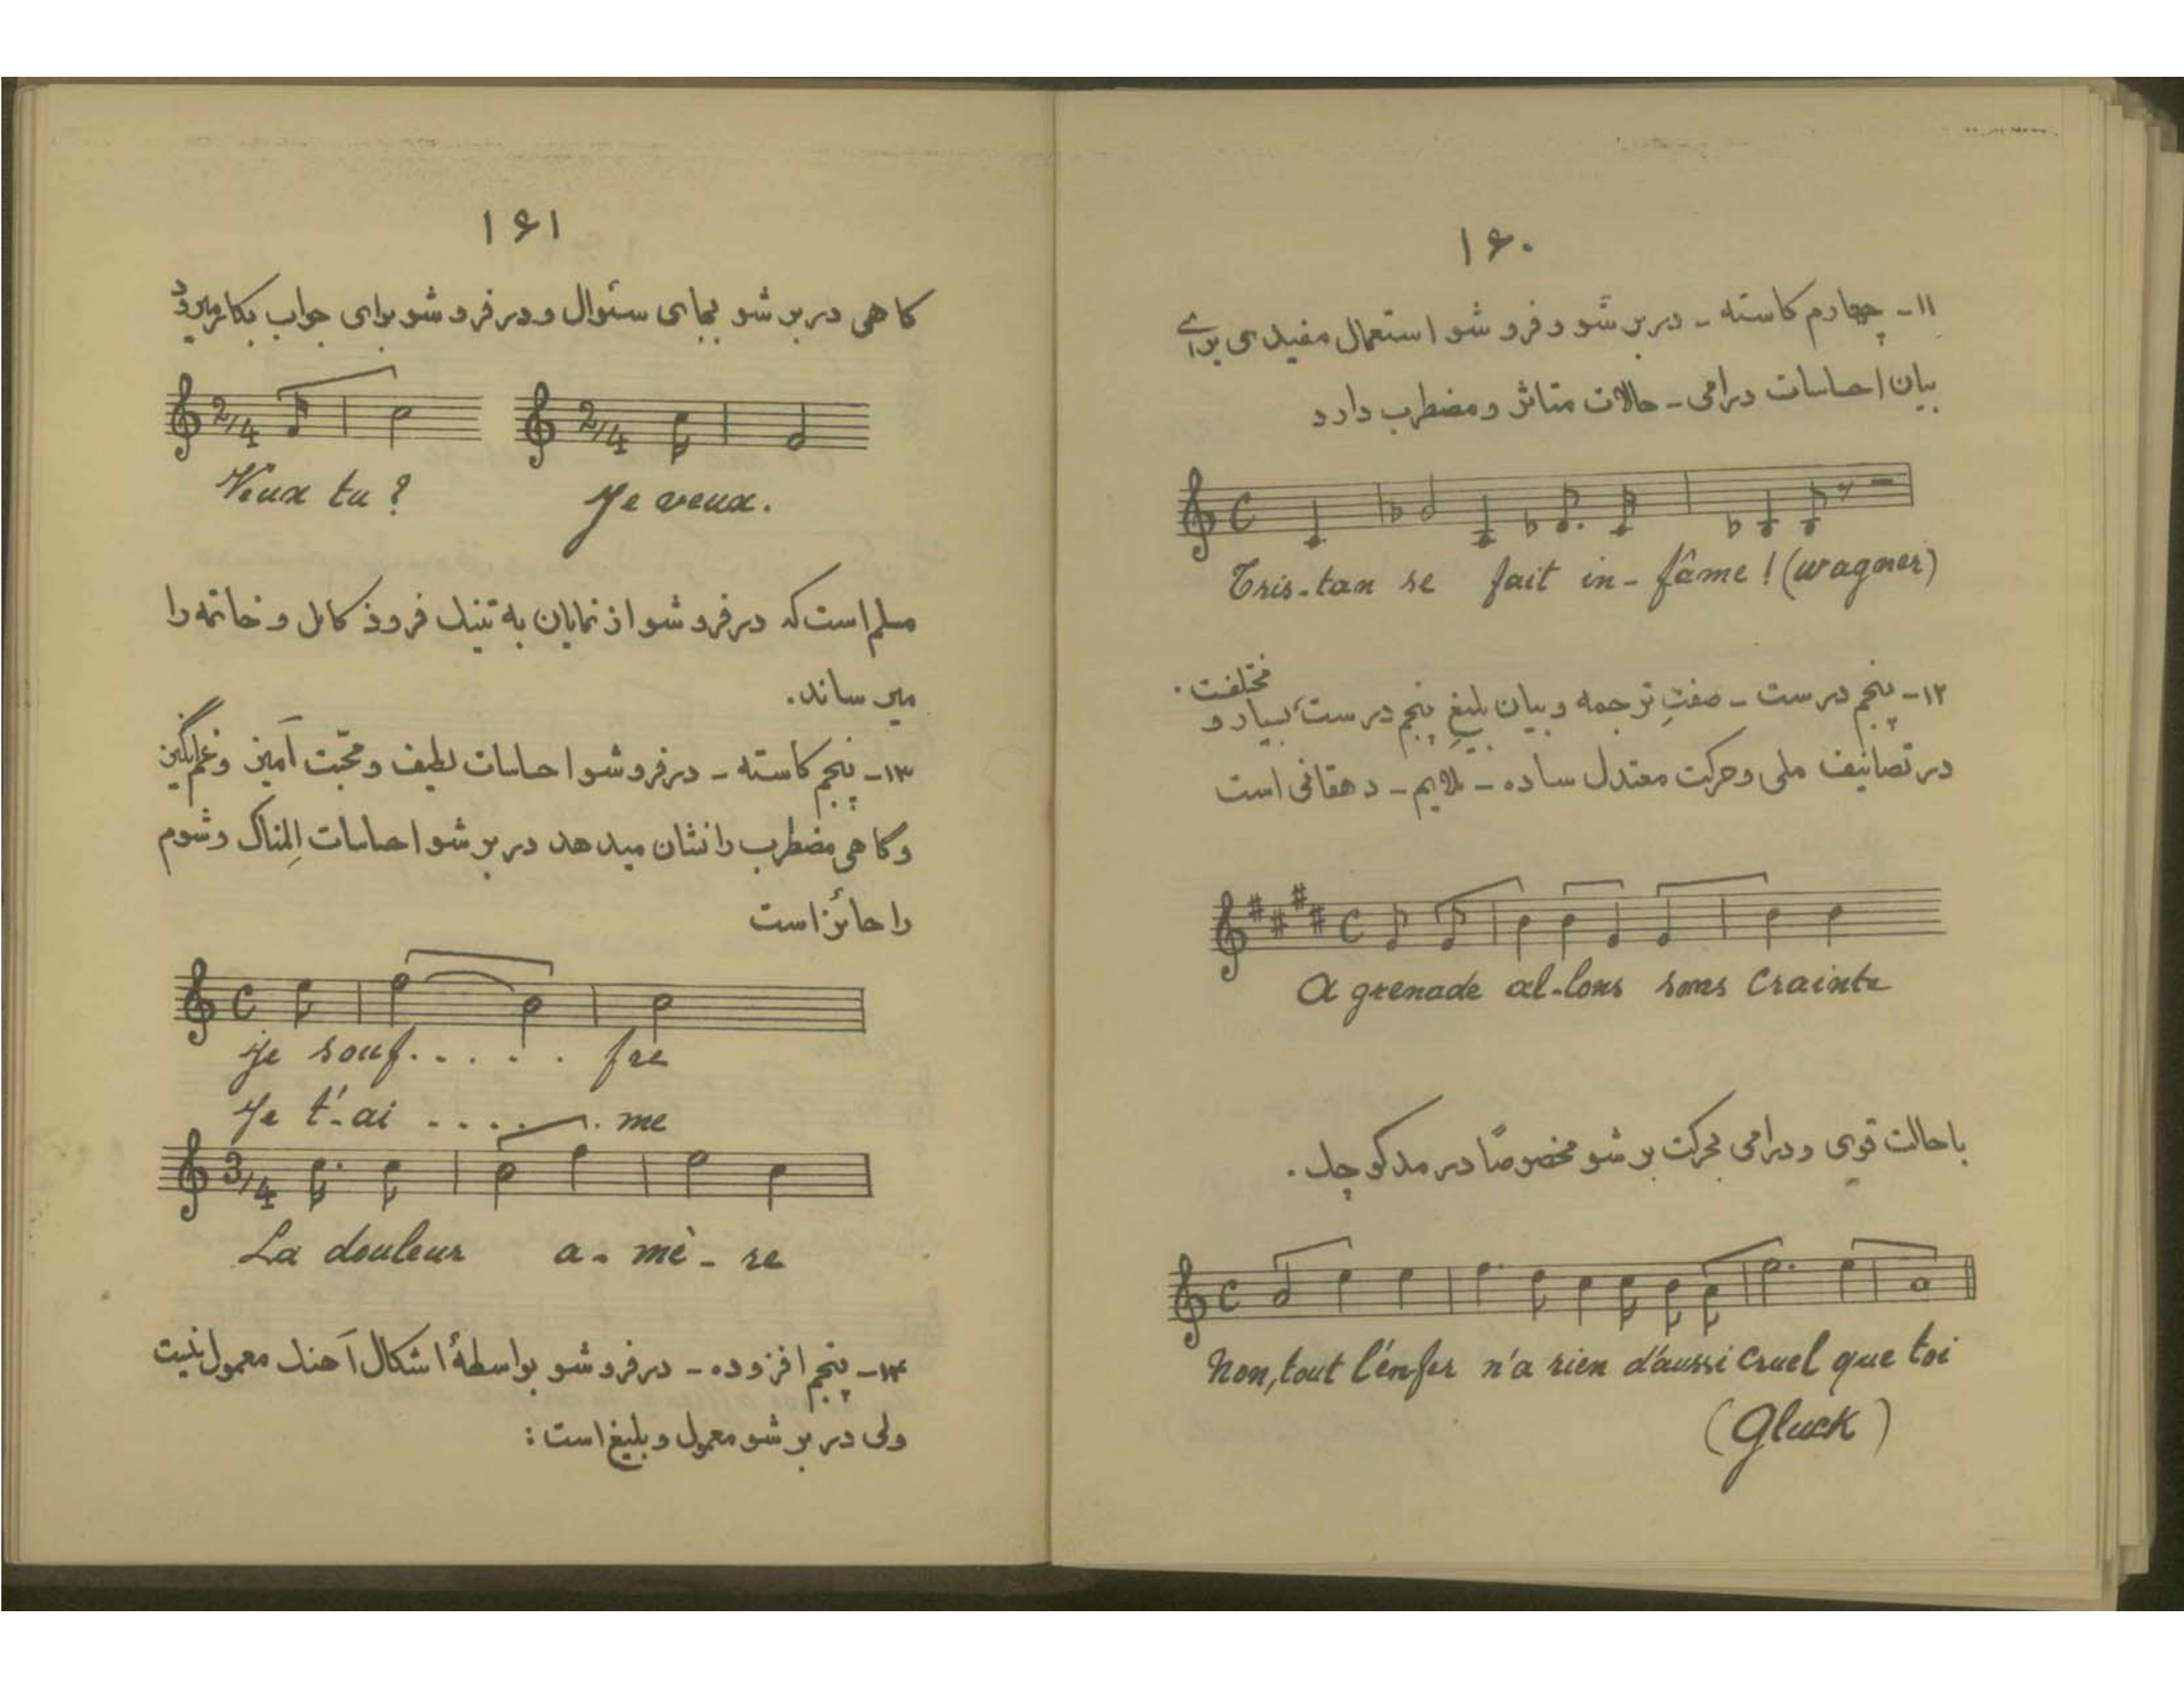 ۱۶۰
۱۱- چهارم کاسته - در بر شو و فرو شو استعمال مفیدی برای
بیان احساسات درامی - حالات متاثر و مضطرب دارد
C
Tris-tan se fait in-fâme! (wagner)
۱۲- پنجم درست - صفتِ ترجمه و بیان بلیغِ پنجم درست، بسیار و مختلفت.
در تصانیف ملی و حرکت معتدل ساده - ملایم - دهقانی است
C
A grenade al-lons sans Crainte
با حالت قوی و درامی بحرکت بر شو مخصوصًا در مد کوچک.
C
Non, tout l'en-fer n'a rien d'aussi cruel que toi
(Gluck)
۱۶۱
کاهی در بر شو بجای سئوال و در فرو شو برای جواب بکار میرود
2/4 2/4
Veux tu? Je veux.
مسلم است که در فرو شو از نمایان به تنیک فرود کامل و خاتمه را
میرساند.
۱۳- پنجم کاسته - در فرو شو احساسات لطیف و محّبت آمیز و غم انگیز
و کاهی مضطرب را نشان میدهد در بر شو احساسات المِناک و شوم
را حائز است
C
Je souf...... fre
Je t'-ai ...... me
3/4
La douleur a-mè-re
۱۴- پنجم افزوده - در فرو شو بواسطهٔ اشکال آهنک معمول نیست
ولی در بر شو معمول و بلیغ است: